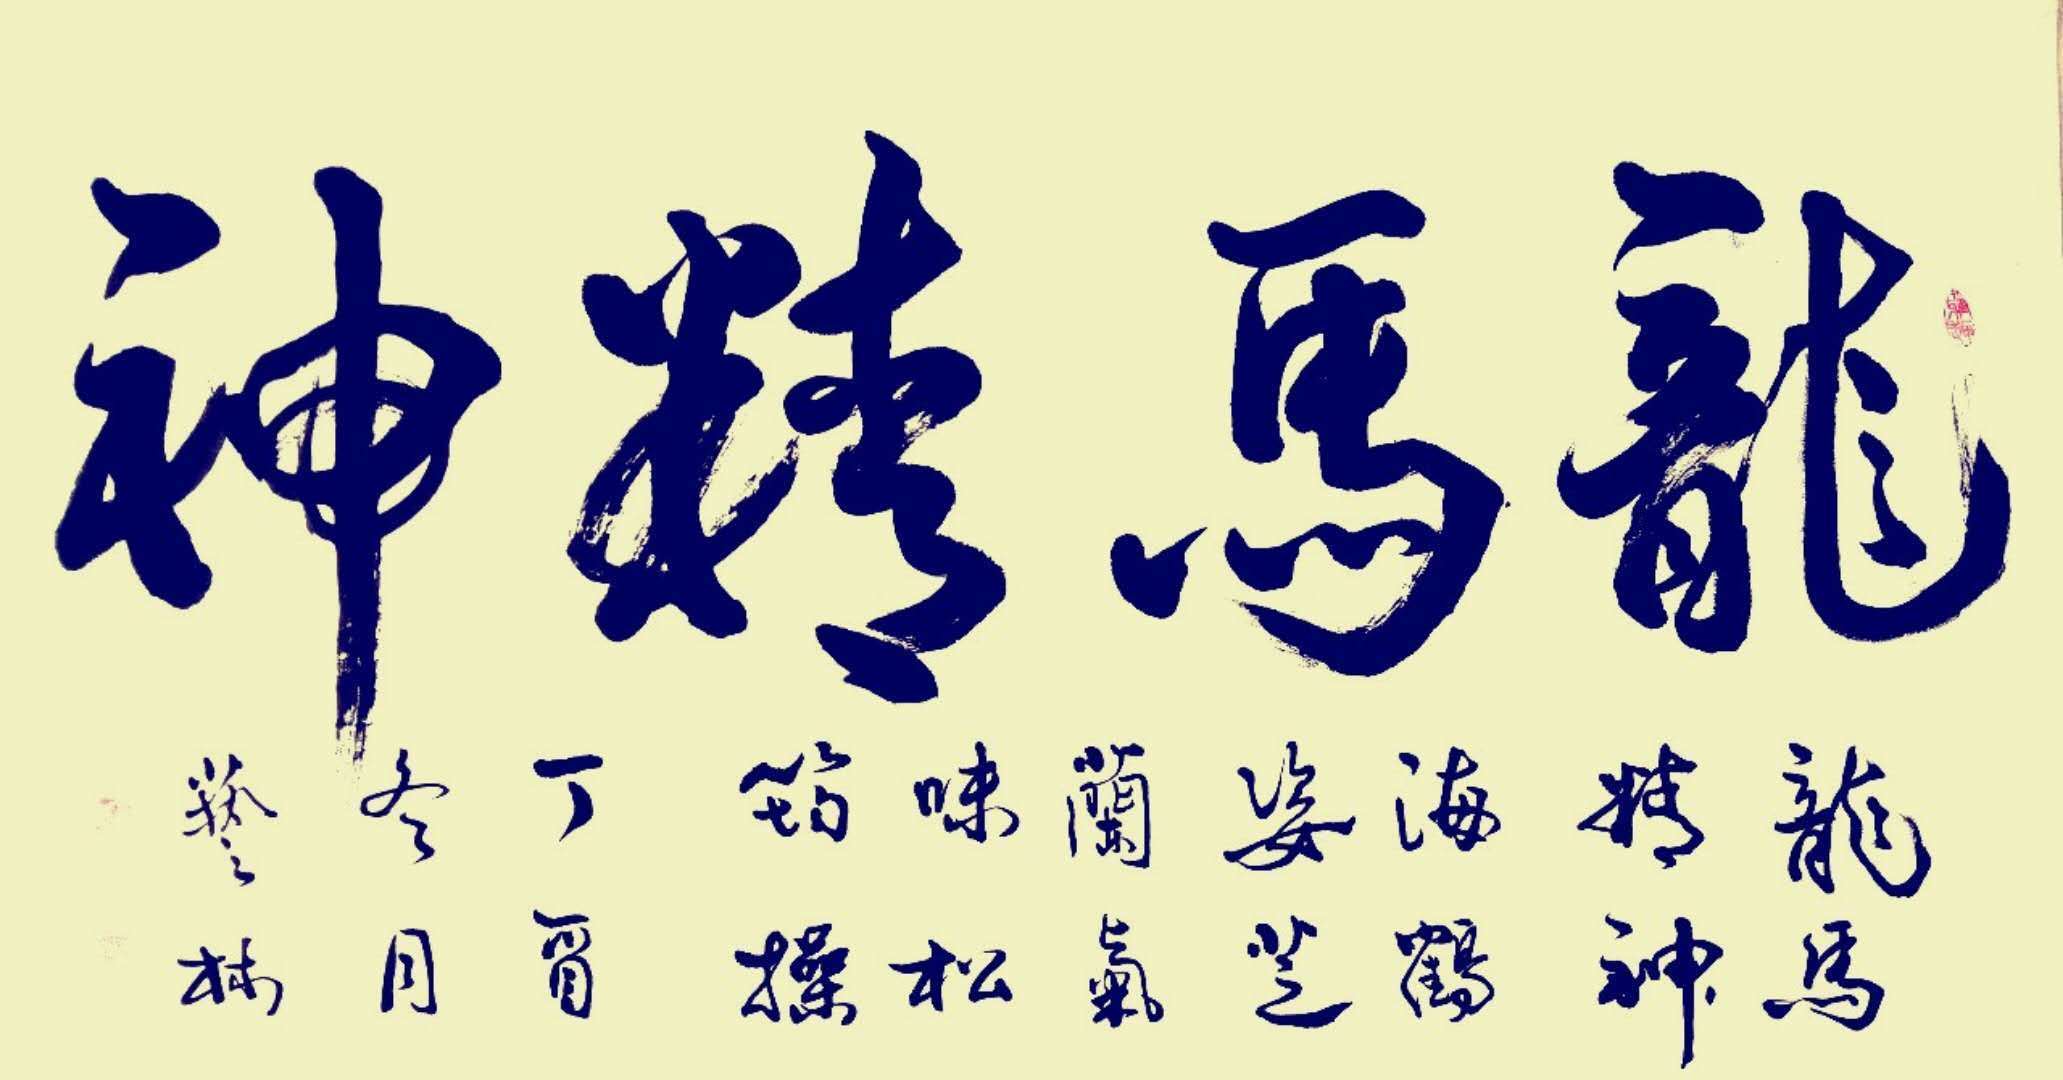 龍馬精神
龍馬
精神
海鶴
姿芝
蘭氣
味松
筠操
丁酉
冬月
藝林